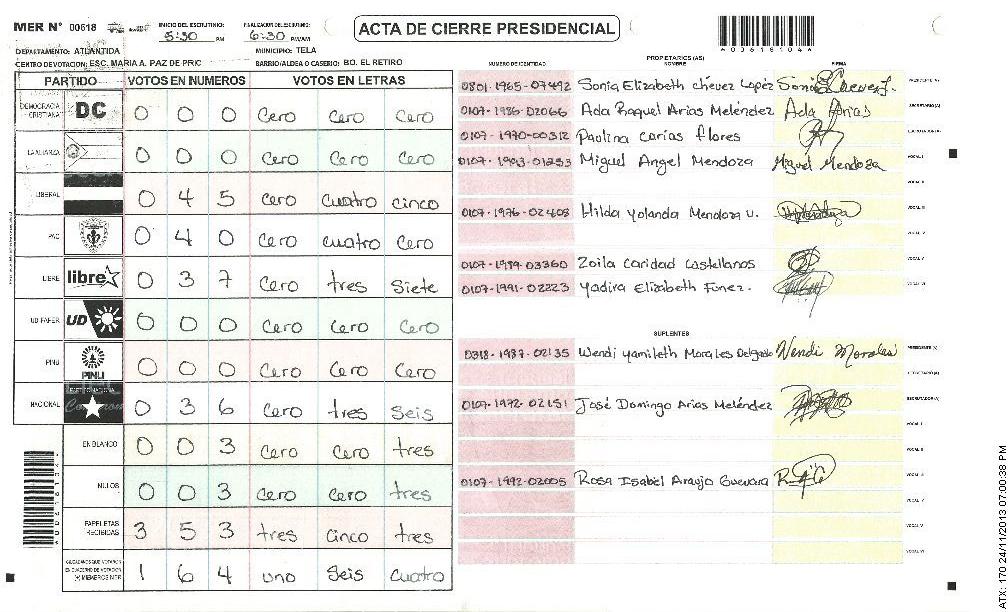 MER Nº 00618
INICIO DEL ESCRUTINIO:
5:30 PM
FINALIZACION DEL ESCRUTINIO:
6:30 PM/AM
ACTA DE CIERRE PRESIDENCIAL
DEPARTAMENTO: ATLANTIDA
MUNICIPIO: TELA
CENTRO DE VOTACION: ESC. MARIA A. PAZ DE PRIC
BARRIO/ALDEA O CASERIO: BO. EL RETIRO
PARTIDO VOTOS EN NUMEROS VOTOS EN LETRAS
DEMOCRACIA CRISTIANA DC 0 0 0 cero cero cero
LA ALIANZA 0 0 0 cero cero cero
LIBERAL 0 4 5 cero cuatro cinco
PAC 0 4 0 cero cuatro cero
LIBRE libre 0 3 7 cero tres siete
UD FAPER UD 0 0 0 cero cero cero
PINU PINU 0 0 0 cero cero cero
NACIONAL 0 3 6 cero tres seis
EN BLANCO 0 0 3 cero cero tres
NULOS 0 0 3 cero cero tres
PAPELETAS RECIBIDAS 3 5 3 tres cinco tres
CIUDADANOS QUE VOTARON EN CUADERNO DE VOTACION (+) MIEMBROS MER 1 6 4 uno seis cuatro
PROPIETARIOS (AS)
NUMERO DE IDENTIDAD NOMBRE FIRMA
0801-1965-07492 Sonia Elizabeth chévez Lopéz PRESIDENTE (A)
0107-1986-02066 Ada Raquel Arias Meléndez Ada Arias SECRETARIO (A)
0107-1970-00312 Paolina carias flores ESCRUTADOR (A)
Miguel Angel Mendoza Miguel Mendoza VOCAL I
VOCAL II
0107-1976-02408 Hilda Yolanda Mendoza U. VOCAL III
VOCAL IV
Zoila Caridad Castellanos VOCAL V
0107-1991-02223 Yadira Elizabeth Funez. VOCAL VI
SUPLENTES
0318-1987-02135 Wendi Yamileth Morales Delgado Wendi Morales PRESIDENTE (A)
SECRETARIO (A)
0107-1972-02151 José Domingo Arias Meléndez ESCRUTADOR (A)
VOCAL I
VOCAL II
0107-1992-02005 Rosa Isabel Araujo Guevara VOCAL III
VOCAL IV
VOCAL V
VOCAL VI
ATX: 170 24/11/2013 07:00:38 PM